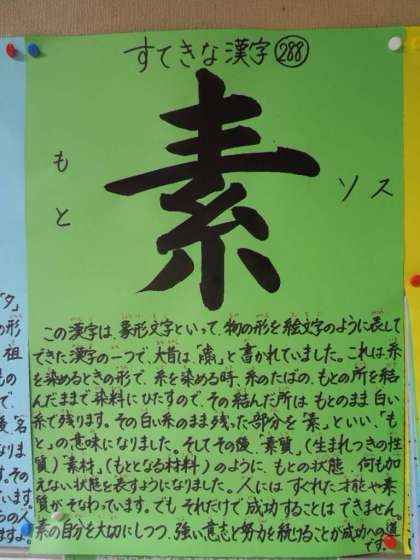 すてきな漢字288
素
もと
ソス
この漢字は、象形文字といって、物の形を絵文字のように表して
できた漢字の一つで、大昔は、「」と書かれていました。これは、糸
を染めるときの形で、糸を染める時、糸のたばの、もとの所を結
んだままで染料にひたすので、その結んだ所は、もとのまま白い
糸で残ります。その白い糸のまま残った部分を「素」といい、「も
と」の意味になりました。そしてその後、「素質」（生まれつきの性
質）「素材」（もととなる材料）のように、もとの状態、何も加
えない状態を表すようになりました。人にはすぐれた才能や素
質がそなわっています。でもそれだけで成功することはできません。
素の自分を大切にしつつ、強い意志と努力を続けることが成功への道
です。